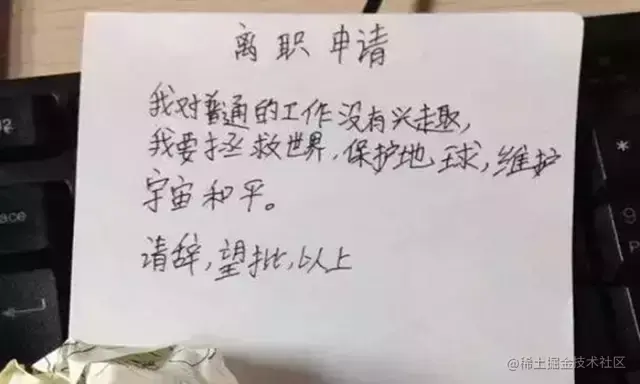 离职申请
我对普通的工作没有兴趣,
我要拯救世界,保护地球,维护
宇宙和平。
请辞,望批,以上
ace
9
@稀土掘金技术社区